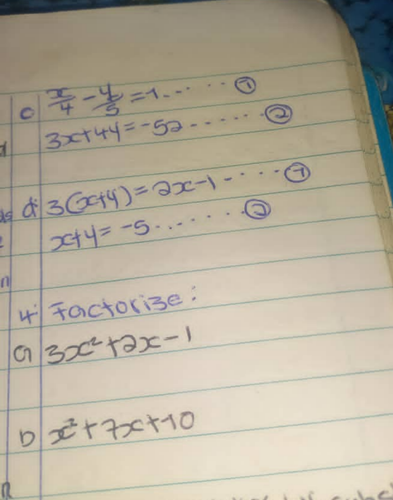 c) x/4 - y/5 = 1 ........ ①
3x+4y = -52 ........ ②
d) 3(x+y) = 2x-1 ..... ①
x+y = -5 ........ ②
4. Factorize:
a) 3x²+2x-1
b x²+7x+10